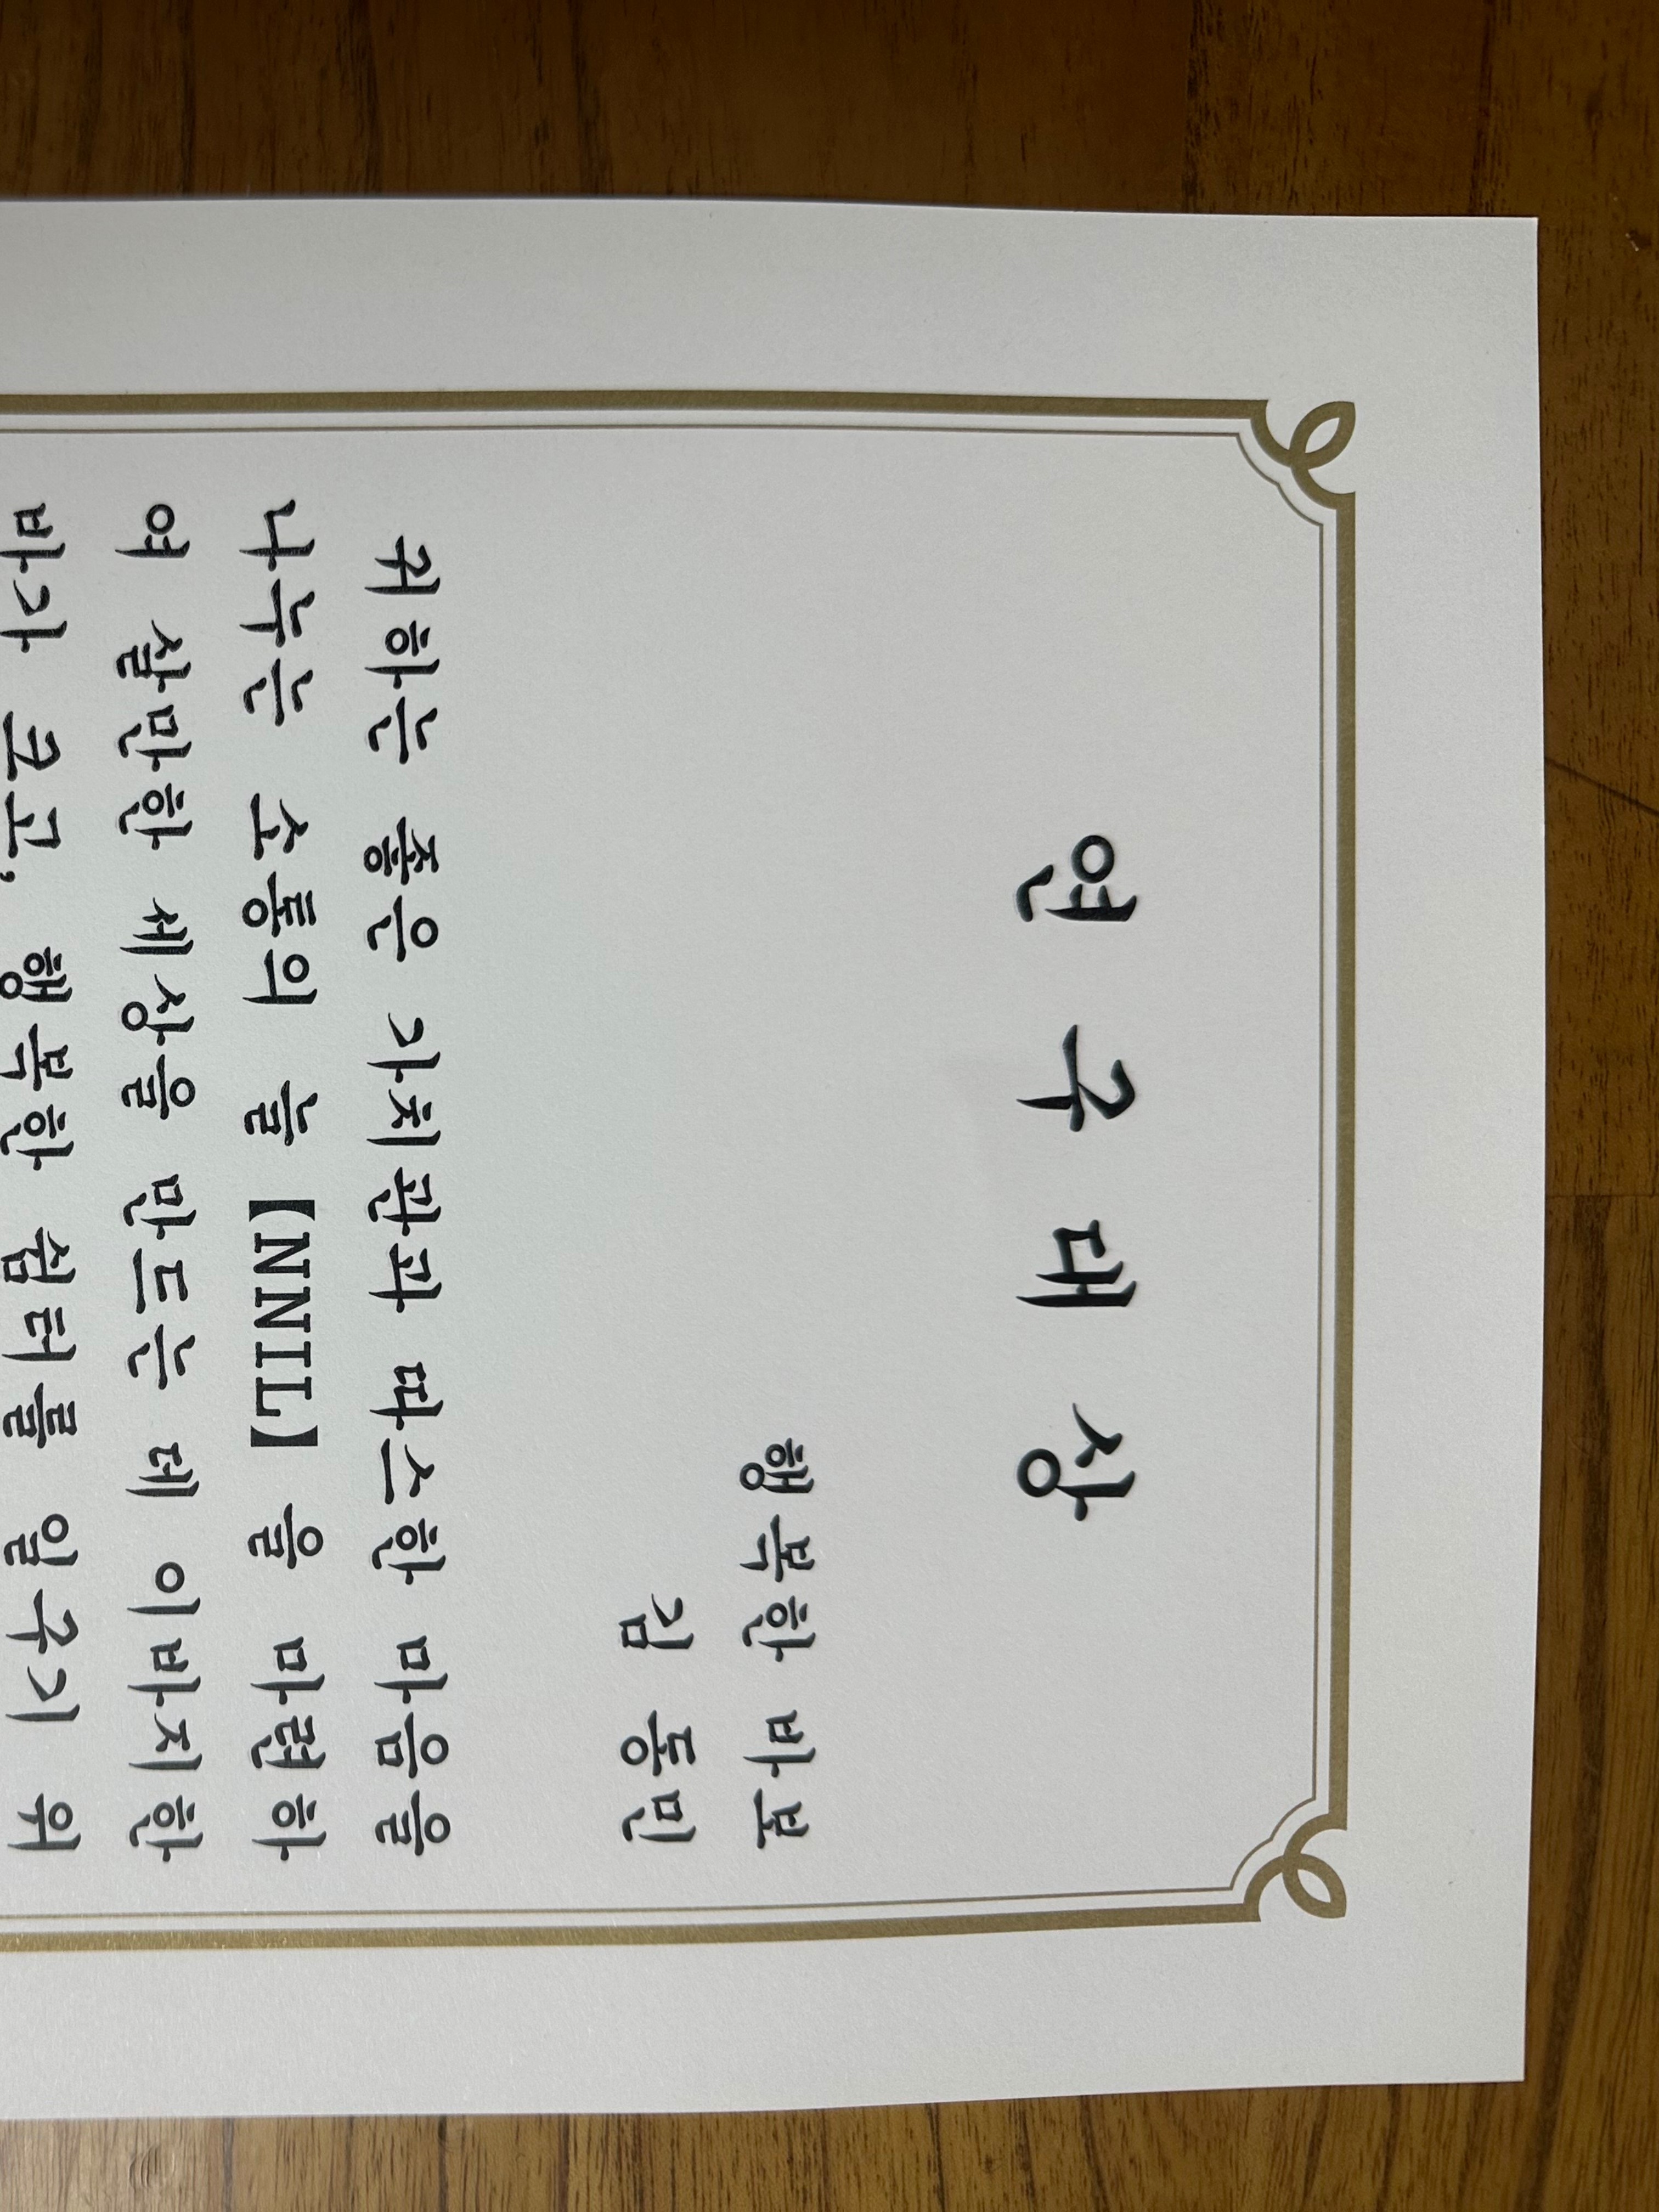 연 구 대 상
행복한 바보
김 동민
귀하는 좋은 가치관과 따스한 마음을
나누는 소통의 놀【NNIL】을 마련하
여 살만한 세상을 만드는 데 이바지한
바가 크고, 행복한 쉼터를 일구기 위